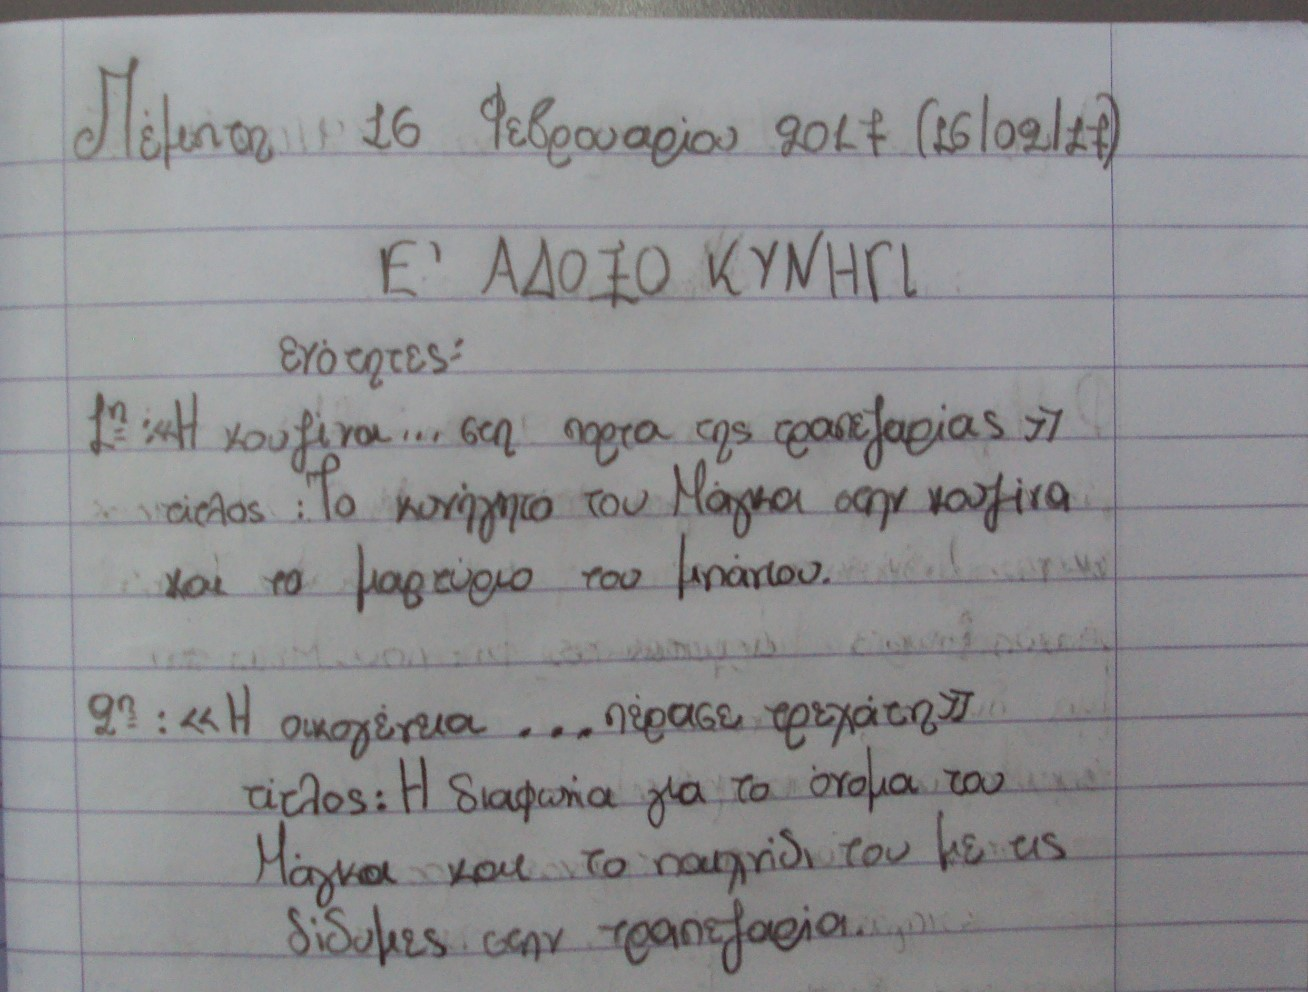 Πέμπτη 16 Φεβρουαρίου 2017 (16/02/17)
Ε' ΑΔΟΞΟ ΚΥΝΗΓΙ
ενότητες:
1η: «Η κουζίνα... στη πόρτα της τραπεζαρίας»
τίτλος: Το κυνήγητο του Μάγκα στην κουζίνα
και το μαρτύριο του μπάνιου.
2η: «Η οικογένεια ... πέρασε τρεχάτη»
τίτλος: Η διαφωνία για το όνομα του
Μάγκα και το παιχνίδι του με τις
δίδυμες στην τραπεζαρία.